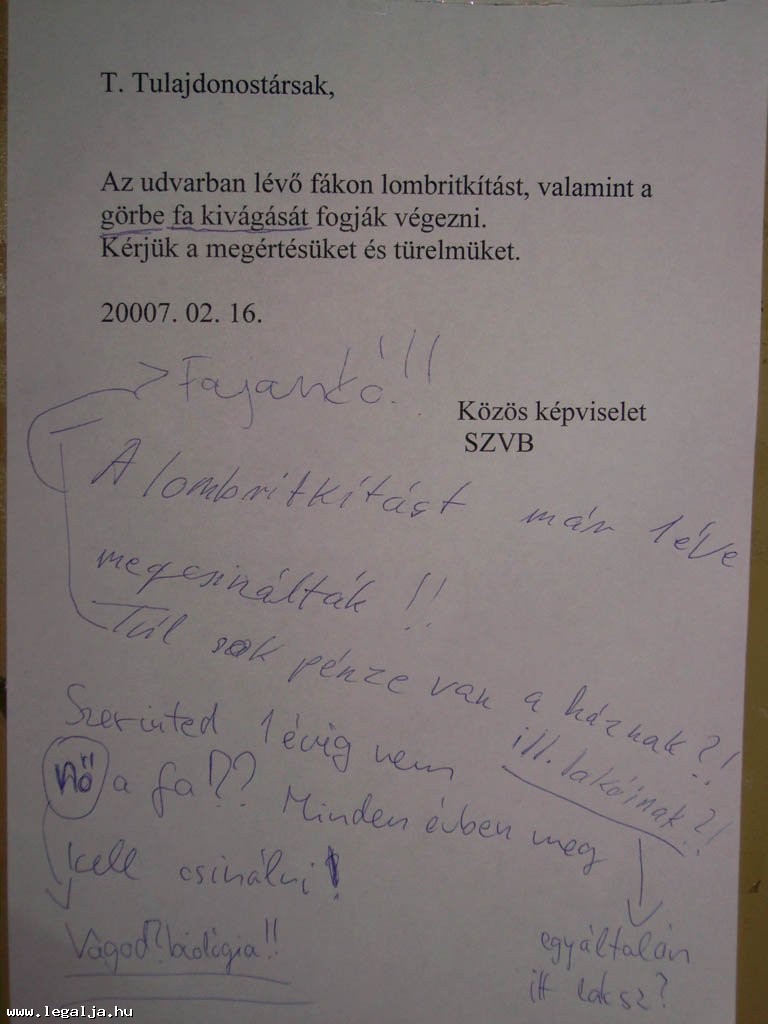 T. Tulajdonostársak,
Az udvarban lévő fákon lombritkítást, valamint a
görbe fa kivágását fogják végezni.
Kérjük a megértésüket és türelmüket.
20007. 02. 16.
Fajankó!!!
Közös képviselet
SZVB
A lombritkítást már 1 éve
megcsinálták!!
Túl sok pénze van a háznak?!
ill. lakóinak?!
Szerinted 1 évig nem
nő a fa!?? Minden évben meg
kell csinálni!
Vágod? biológia!!
egyáltalán
itt laksz?
www.legalja.hu